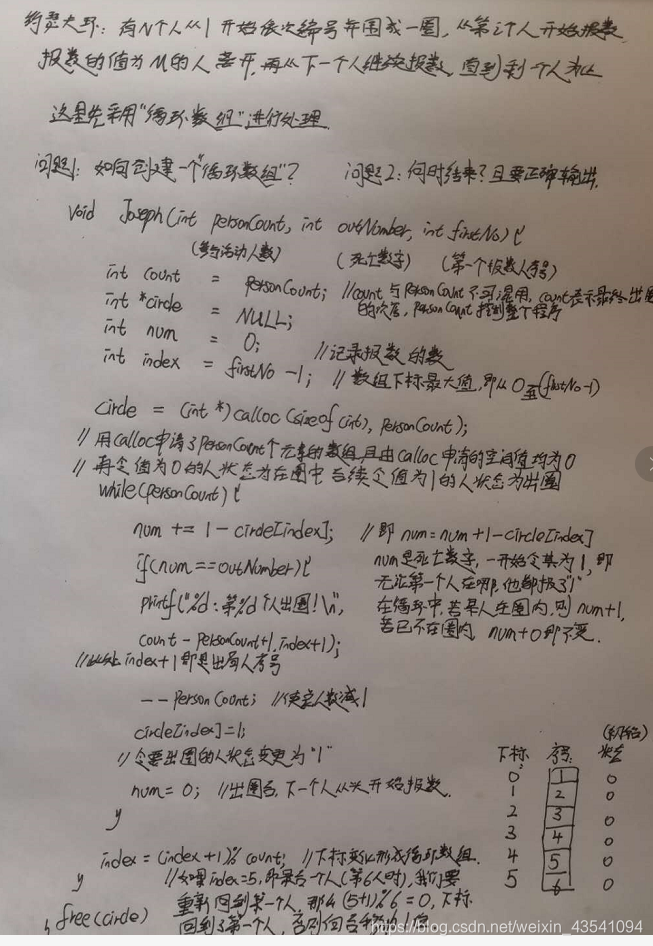 约瑟夫环: 有N个人从1开始依次编号并围成一圈, 从第i个人开始报数,
报数的值为M的人离开, 再从下一个人继续报数, 直到剩一个人为止
这里先采用"循环数组"进行处理.
问题1: 如何创建一个"循环数组"? 问题2: 何时结束? 且要正确输出.
void Joseph(int personCount, int outNumber, int firstNo){
(参与活动人数) (死亡数字) (第一个报数人序号)
int count = personCount; //count 与 personCount 不可混用, count表示最终出圈
的次序, personCount 控制整个程序
int *circle = NULL;
int num = 0; //记录报数的数
int index = firstNo -1; //数组下标最大值, 即从0至(firstNo-1)
circle = (int *)calloc(sizeof(int), personCount);
//用calloc申请了personCount个元素的数组,且由calloc申请的空间值均为0
//再令值为0的人状态为在圈中 后续令值为1的人状态为出圈
while(personCount){
num += 1-circle[index]; //即 num=num+1-circle[index]
if(num==outNumber){ num是死亡数字, 一开始令其为1, 即
无论第一个人在哪, 他都报了"1"
printf("%d:第%d个人出圈!\n", 在循环中, 若某人在圈内, 则 num+1,
count-personCount+1, index+1); 若已不在圈内, num+0即不变.
//此处index+1即是出局人序号
--personCount; //使总人数减1
circle[index]=1;
//令要出圈的人状态变更为"1"
num=0; //出圈后, 下一个人从头开始报数.
}
index=(index+1)% count; //下标变化形成循环数组.
} //如果index=5, 即最后一个人(第6人时), 我们要
重新回到第一个人, 那么 (5+1)%6=0, 下标
free(circle) 回到了第一个人, 否则
下标: 序号: (初始) 状态
0 1 0
1 2 0
2 3 0
3 4 0
4 5 0
5 6 0
https://blog.csdn.net/weixin_43541094